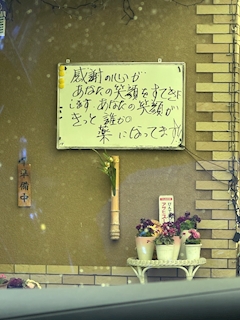 感謝の心が
あなたの笑顔をすてきに
します あなたの笑顔が
きっと 誰かの
薬になってます
準備中